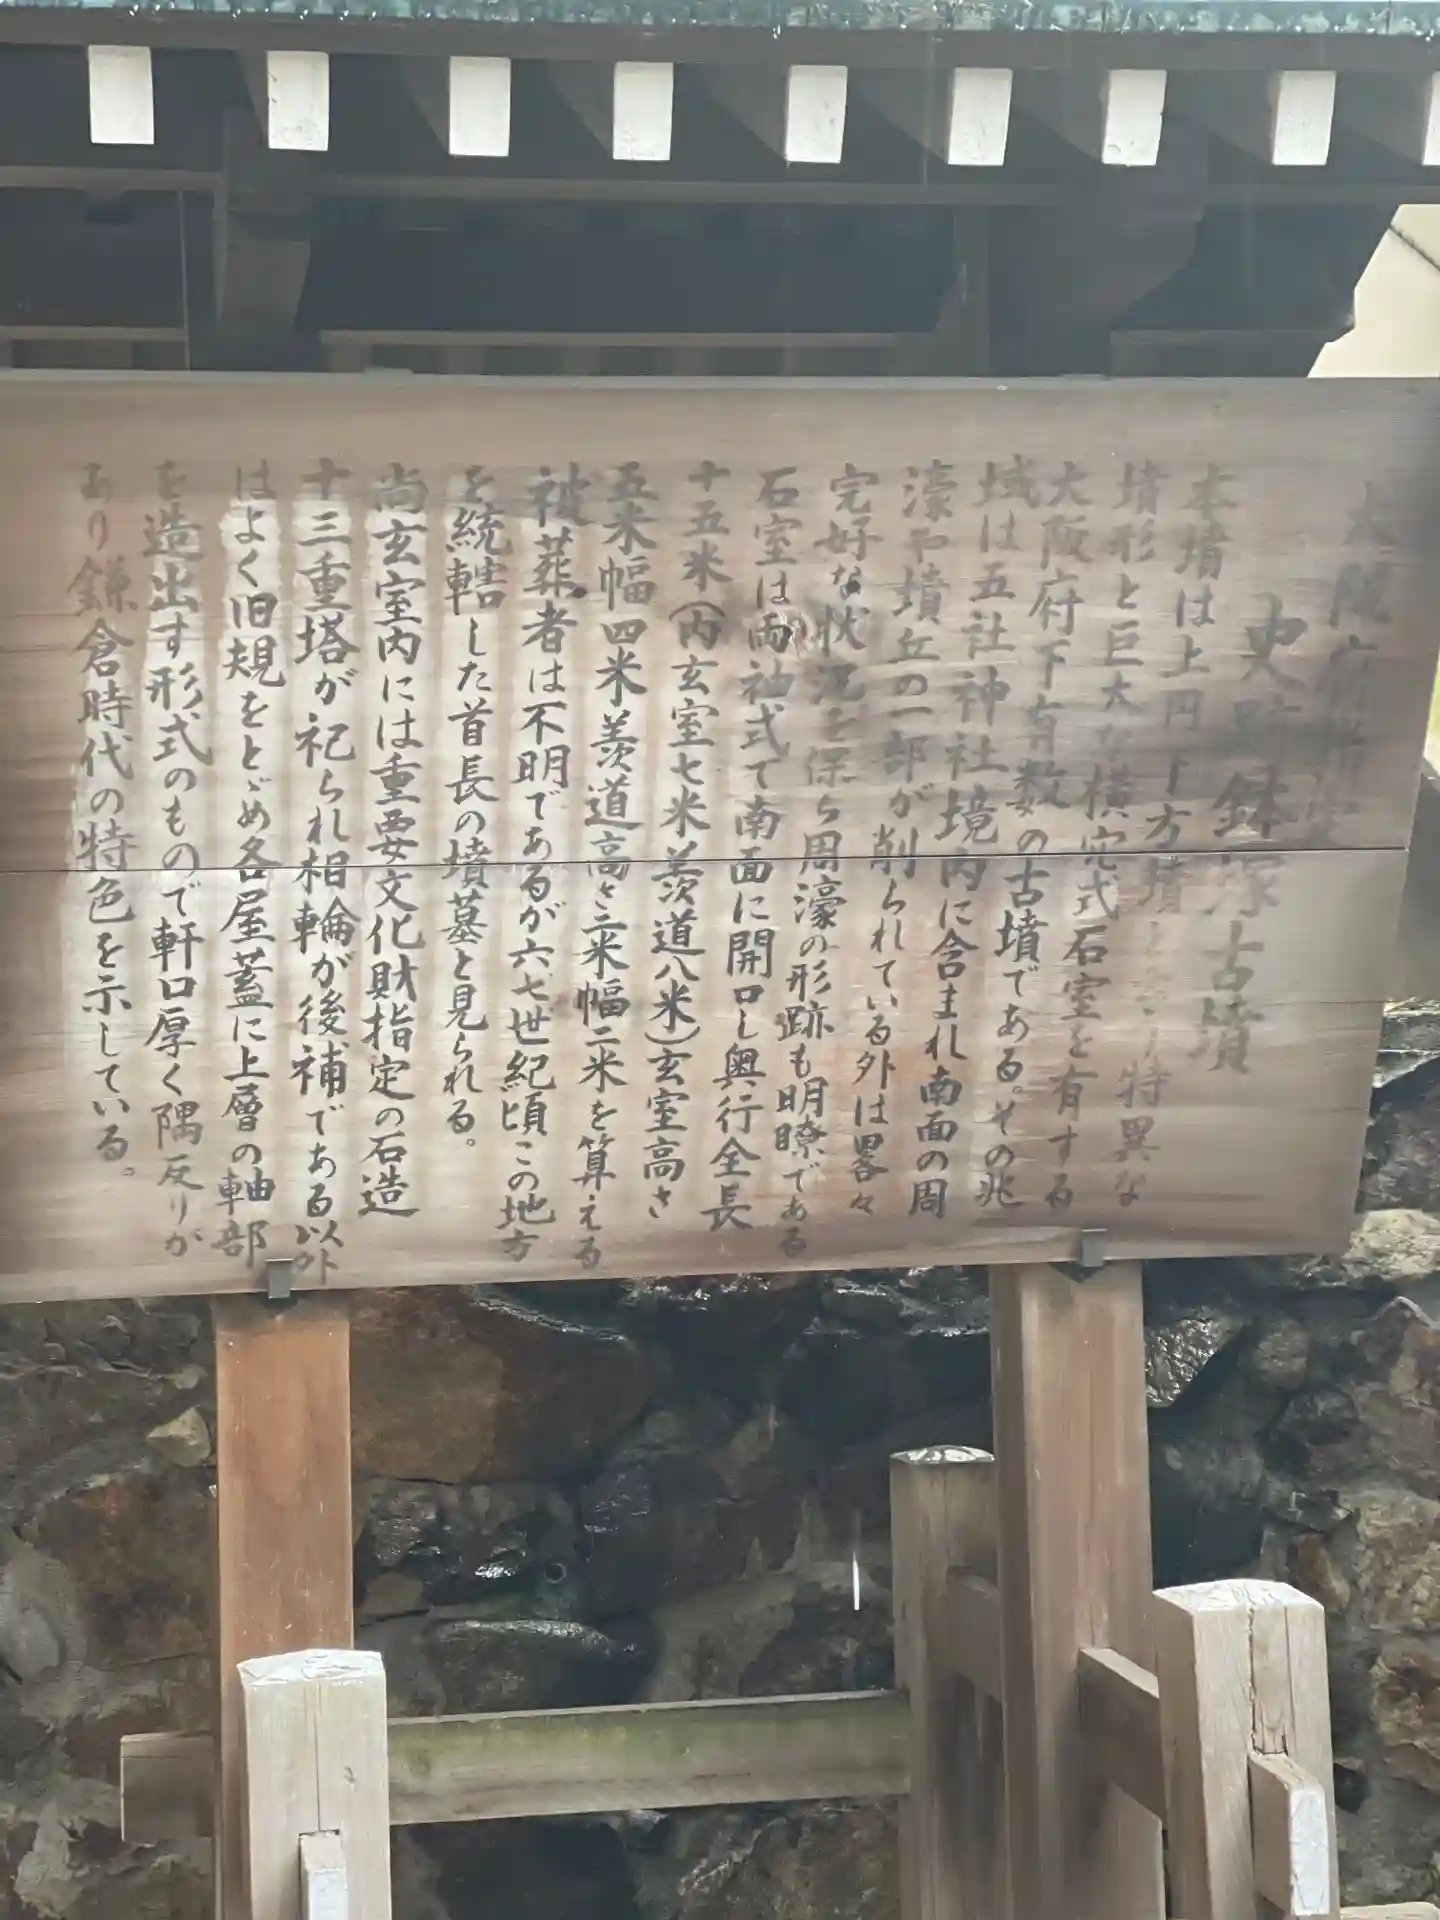 大阪府指定
史跡鉢塚古墳
本墳は上円下方墳と云う特異な
墳形と巨大な横穴式石室を有する
大阪府下有数の古墳である。その兆
域は五社神社境内に含まれ南面の周
濠や墳丘の一部が削られている外は畧々
完好な状況を保ち周濠の形跡も明瞭である
石室は両袖式で南面に開口し奥行全長
十五米(内玄室七米羨道八米)玄室高さ
五米幅四米羨道高さ二米幅二米を算える
被葬者は不明であるが六、七世紀頃この地方
を統轄した首長の墳墓と見られる。
尚玄室内には重要文化財指定の石造
十三重塔が祀られ相輪が後補である以外
はよく旧規をとゞめ各屋蓋に上層の軸部
を造出す形式のもので軒口厚く隅反りが
あり鎌倉時代の特色を示している。